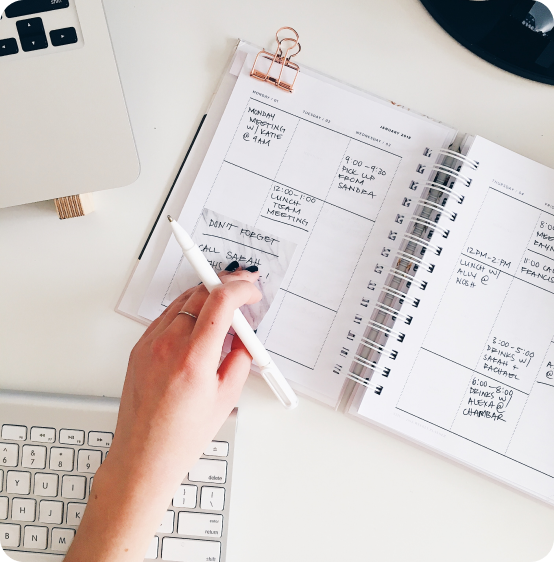 JANUARY 2018
MONDAY / 01
TUESDAY / 02
WEDNESDAY / 03
THURSDAY / 04
MONDAY
MEETING
W/ KATIE
@ 9AM
12:00-1:00
LUNCH
TEAM
MEETING
9:00-9:30
PICK UP
FROM
SANDRA
DON'T FORGET
CALL SARAH
12PM-2PM
LUNCH W/
ALLY @
NOSH
3:00-5:00
DRINKS W/
SARAH +
RACHAEL
6:00-8:00
DRINKS W/
ALEXA @
CHAMBAR
11:00
shift
6
&
7
*
8
(
9
Y
U
I
G
H
J
K
B
N
M
delete
|
\
enter
return
shift